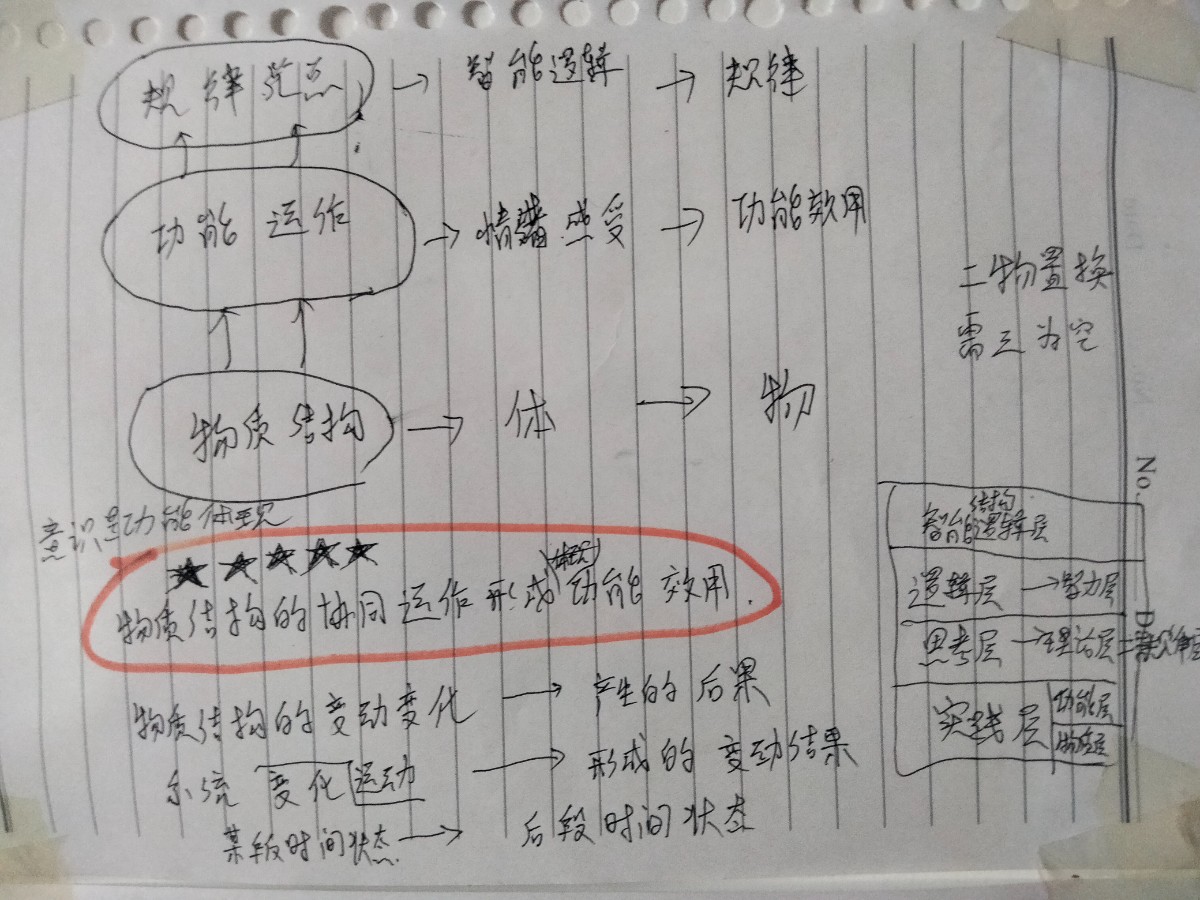 规律范点 → 智能逻辑 → 规律
功能运作 → 情绪感受 → 功能效用
二物置换
需三为空
物质结构 → 体 → 物
No.
意识是功能体现
★★★★★
物质结构的协同运作形成(体现)功能效用.
物质结构的变动变化 → 产生的后果
系统变化运动 → 形成的变动结果
某段时间状态 → 后段时间状态
结构
智能逻辑层
逻辑层 → 智力层
思考层 → 理论层
实践层
功能层
物质层